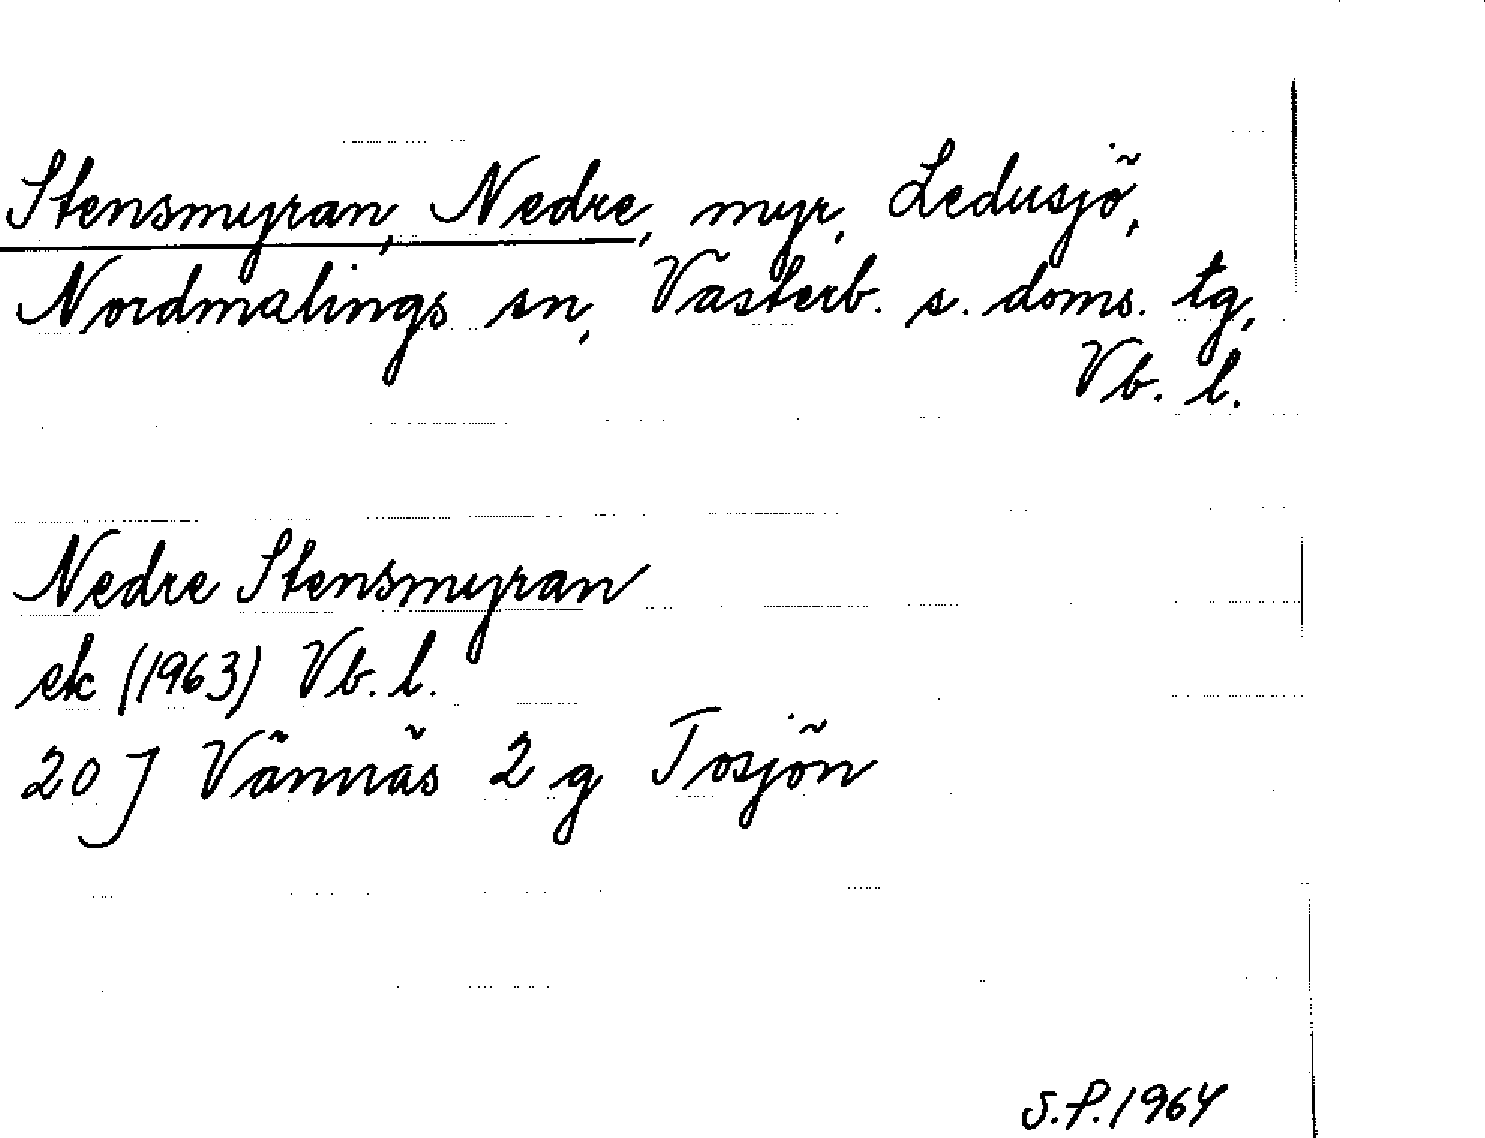 Stensmyran, Nedre, myr, Ledusjö,
Nordmalings sn, Västerb. s. doms. tg,
Vb. l.
Nedre Stensmyran
ek (1963) Vb. l.
20 J Vännäs 2 g Tosjön
S.P. 1964